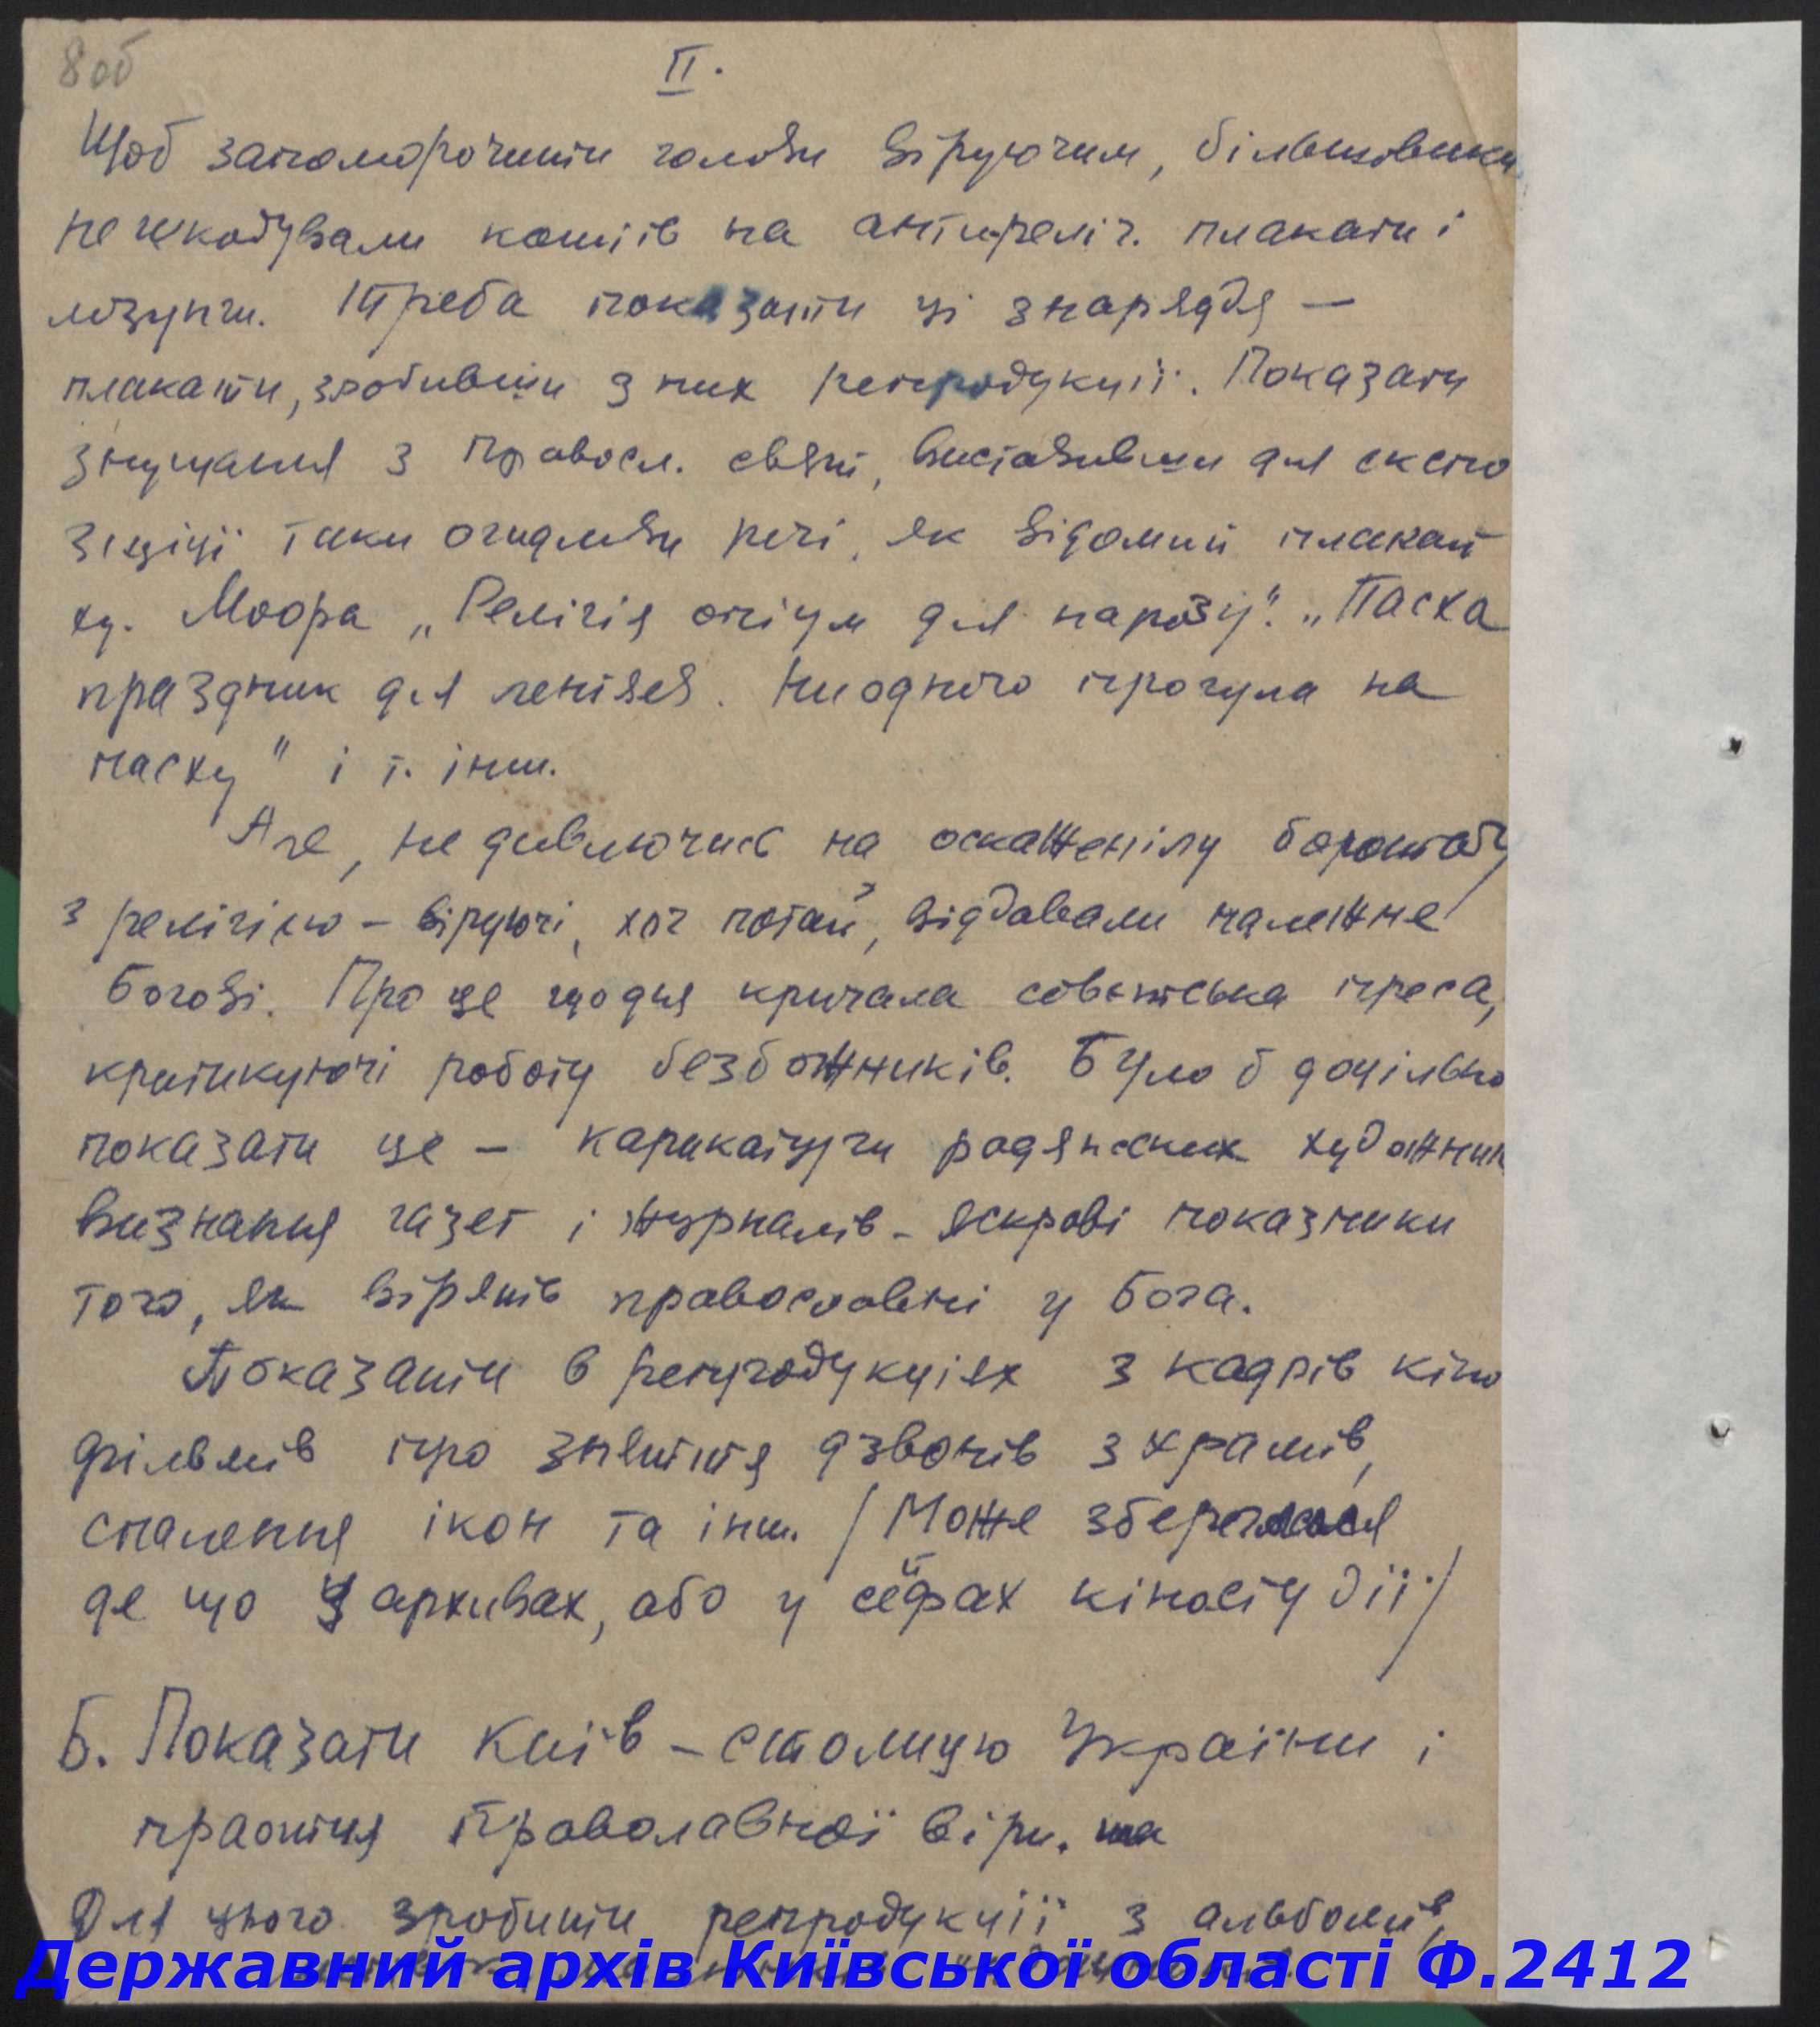 8об
II.
Щоб запаморочити голови віруючим, більшовики
не шкодували коштів на антиреліг. плакати і
лозунги. Треба показати ці знаряддя —
плакати, зробивши з них репродукції. Показати
знущання з правосл. свят, виставивши для експо
зиції таки огидливи речі, як відомий плакат
ху. Моора „Релігія опіум для народу". „Пасха
праздник для лентяев. Ни одного прогула на
пасху" і т. інш.
Але, не дивлючись на оскаженілу боротьбу
з релігією – віруючі, хоч потай, віддавали належне
Богові. Про це щодня кричала совєтська преса,
критикуючі роботу безбожників. Було б доцільно
показати це – карикатури радянських художник
визнання газет і журналів – яскраві показники
того, як вірять православні у Бога.
Показати в репродукціях з кадрів кіно
фільмів про зняття дзвонів з храмів,
спалення ікон та інш. /Може збереглися
де що у архивах, або у сейфах кіностудії/
Б. Показати Київ – столицю України і
православної віри. та
Для цього зробити репродукції з альбомів,
Державний архів Київської області Ф.2412